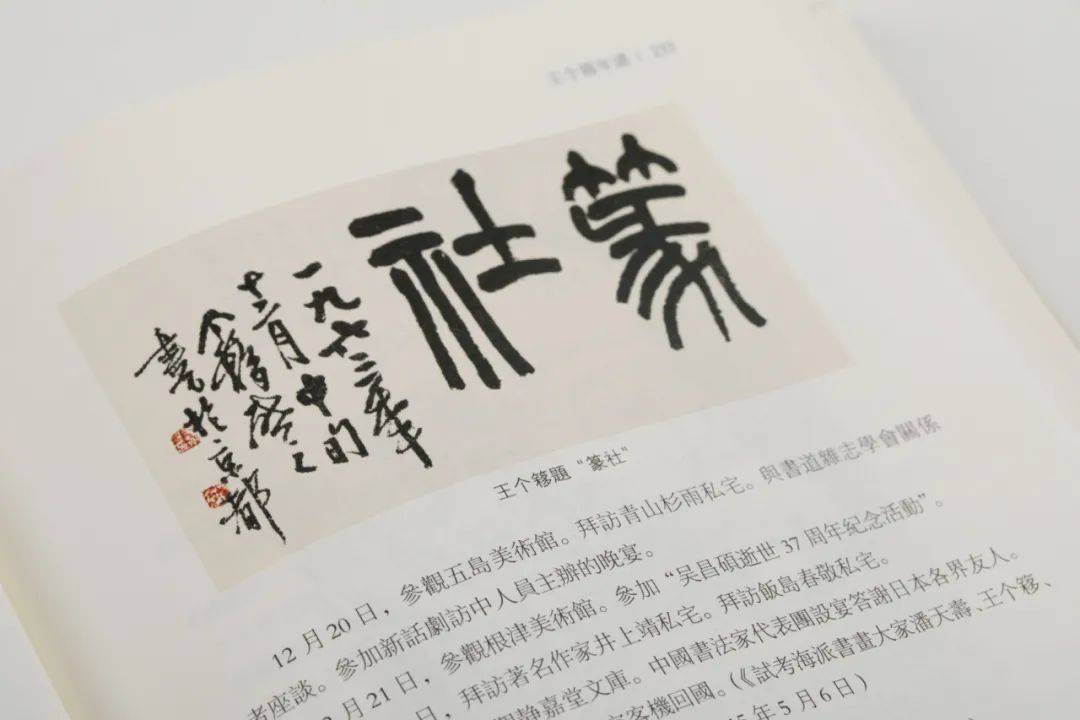 王个簃年譜
篆社
一九六三年
十二月中旬
个簃
書於京都
王个簃題“篆社”
12 月 20 日，參觀五島美術館。拜訪青山杉雨私宅。與書道雜志學會關係
者座談。參加新話劇訪中人員主辦的晚宴。
2 月 21 日，參觀根津美術館。參加“吴昌碩逝世 37 周年紀念活動”。
日，拜訪著名作家井上靖私宅。拜訪飯島春敬私宅。
静嘉堂文庫。中國書法家代表團設宴答謝日本各界友人。
客機回國。（《試考海派書畫大家潘天壽、王个簃、
5 年 5 月 6 日）